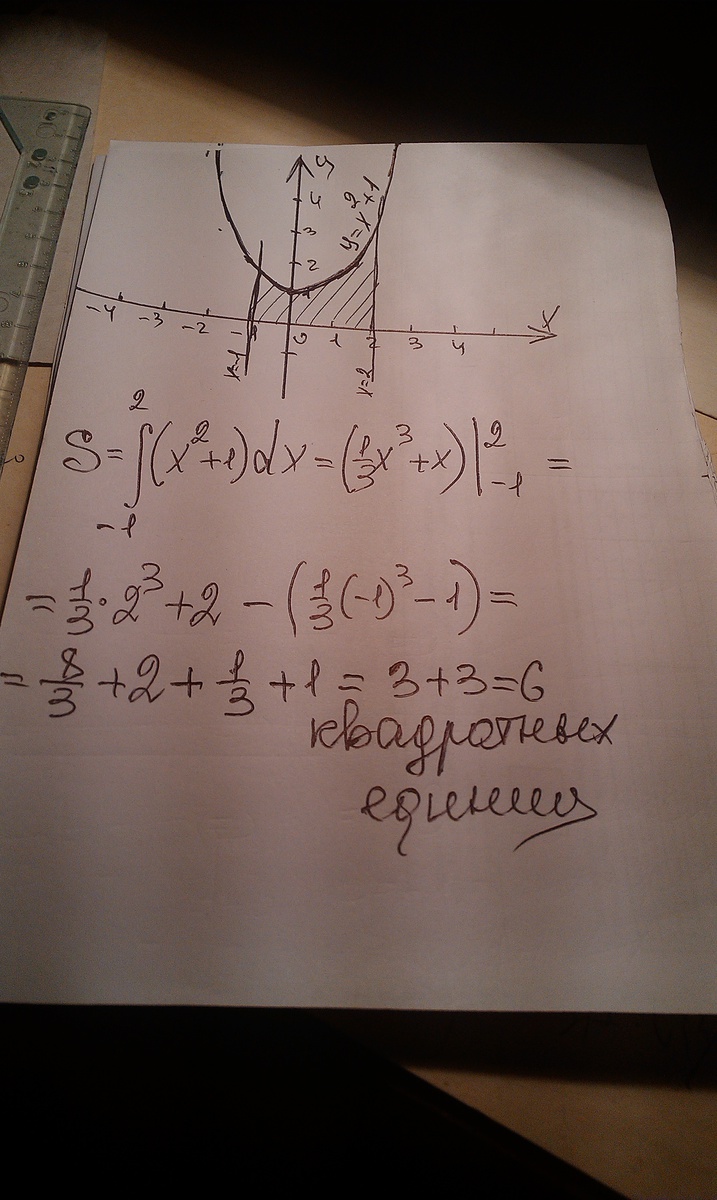 y
4
3
2
1
y=x²+1
-4 -3 -2 -1 0 1 2 3 4 x
x=-1 x=2
S=∫₋₁²(x²+1)dx=(1/3x³+x)|₋₁² =
=1/3·2³+2-(1/3(-1)³-1)=
=8/3+2+1/3+1=3+3=6
квадратных
единиц